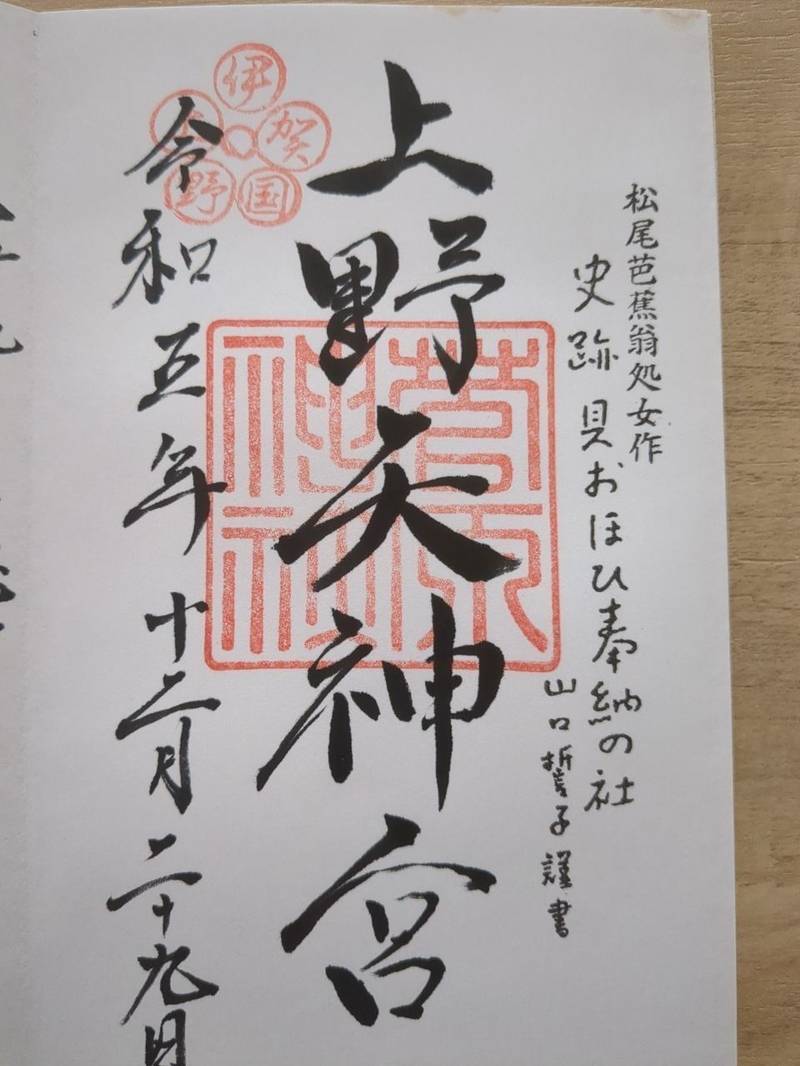 松尾芭蕉翁処女作
史跡 貝おほひ奉納の社
山口誓子謹書
上野天神宮
菅原神社
伊賀国上野
令和五年十二月二十九日